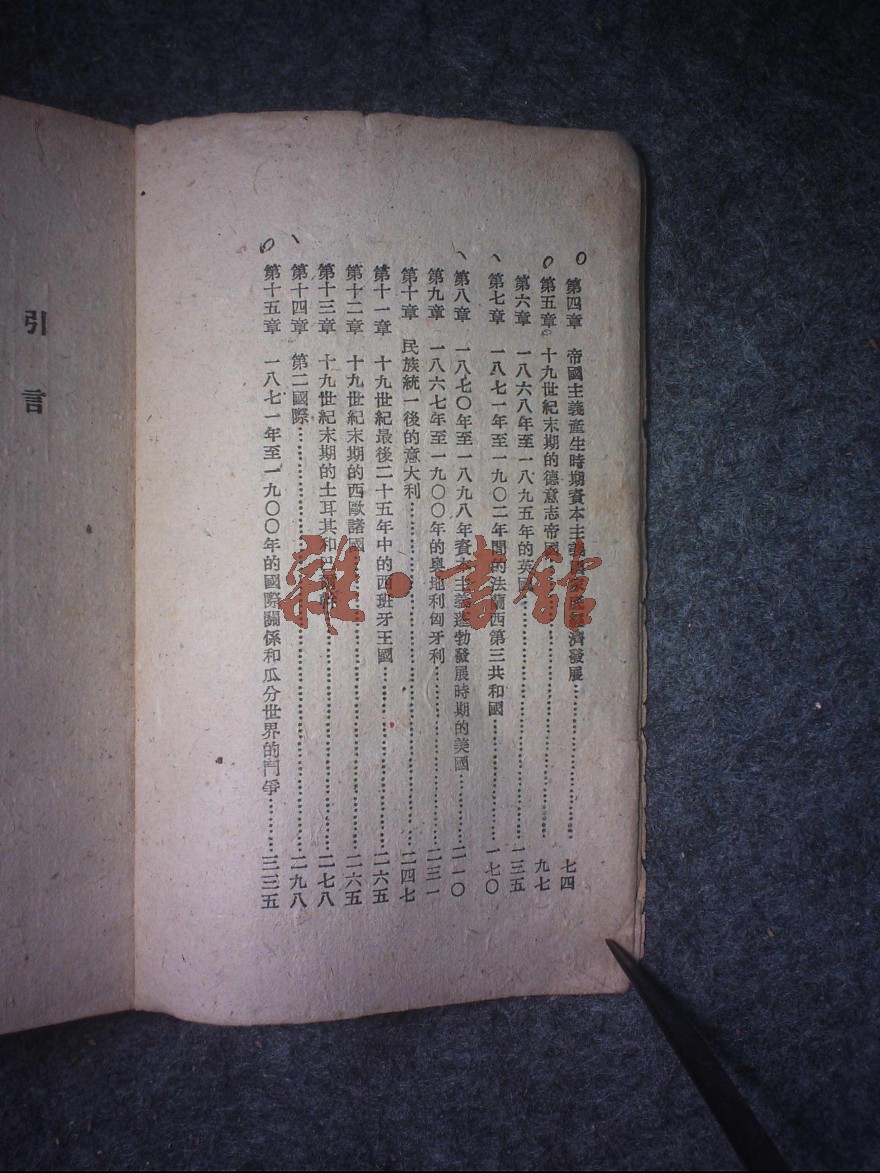 第四章 帝國主義產生時期資本主義 經濟發展 七四
第五章 十九世紀末期的德意志帝國 九七
第六章 一八六八年至一八九五年的英國 一三五
第七章 一八七一年至一九〇二年間的法蘭西第三共和國 一七〇
第八章 一八七〇年至一八九八年資本主義蓬勃發展時期的美國 二一〇
第九章 一八六七年至一九〇〇年的奧地利匈牙利 二三一
第十章 民族統一後的意大利 二四七
第十一章 十九世紀最後二十五年中的西班牙王國 二六五
第十二章 十九世紀末期的西歐諸國 二六五
第十三章 十九世紀末期的土耳其和巴 二七八
第十四章 第二國際 二九八
第十五章 一八七一年至一九〇〇年的國際關係和瓜分世界的鬥爭 三三五
引言
雜·書館